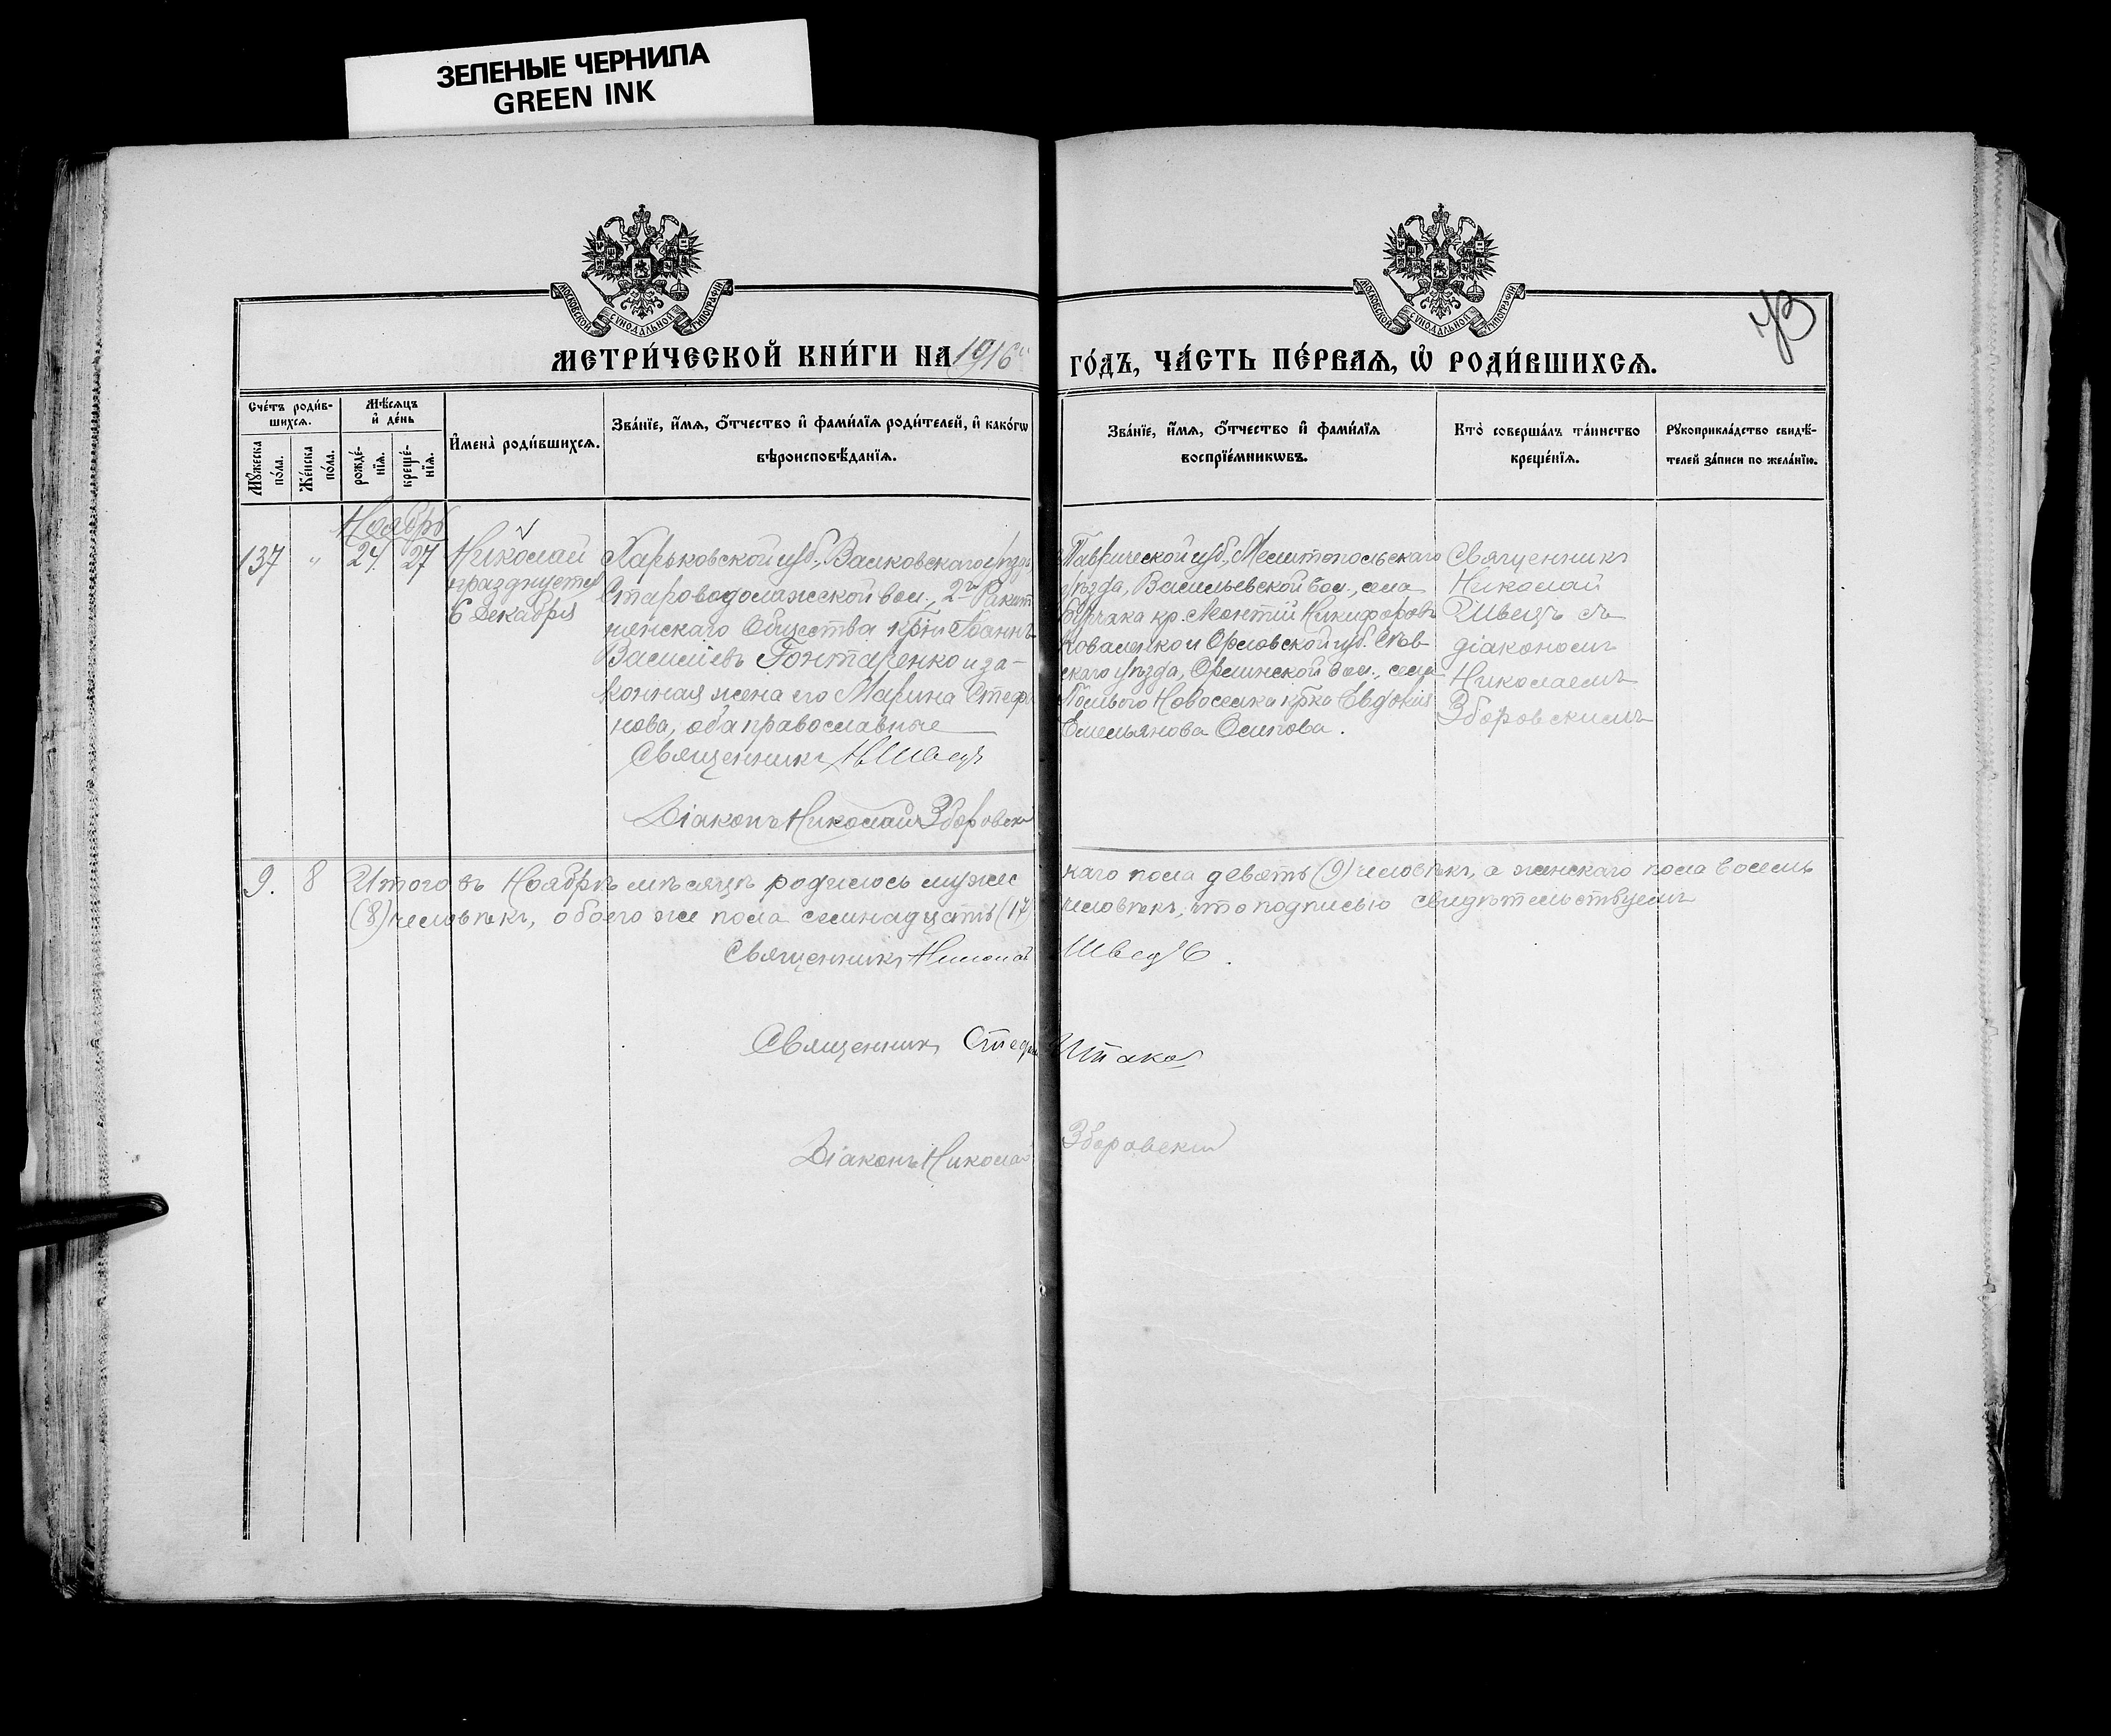 ЗЕЛЕНЫЕ ЧЕРНИЛА
GREEN INK
МОСКОВСКОЙ СѴНОДАЛЬНОЙ ТИПОГРАФІИ
МОСКОВСКОЙ СѴНОДАЛЬНОЙ ТИПОГРАФІИ
МЕТРИ́ЧЕСКОЙ КНИ́ГИ НА 1916й
ГО́ДЪ, ЧА́СТЬ ПЕ́РВАѦ, Ѡ РОДИ́ВШИХСѦ.
Сче́тъ роди́в-
шихсѧ.
Мꙋжеска
по́ла.
Же́нска
по́ла.
Мѣ́сѧцъ
и де́нь
рожде́-
нїѧ.
креще́-
нїѧ.
Имена̀ роди́вшихсѧ.
Зва́нїе, и́мѧ, о́тчество и фами́лїѧ роди́телей, и како́гѡ
вѣроисповѣ́данїѧ.
Зва́нїе, и́мѧ, о́тчество и фами́лїѧ
воспрїе́мникѡвъ.
Кто̀ соверша́лъ та́инство
креще́нїѧ.
Рꙋкоприкла́дство свидѣ́-
телей за́писи по жела́нїю.
Ноябрь
137 " 24 27
Николай
празднуетъ
6 декабря
Харьковской губ., Валковского уѣзда
Староводолажской вол., 2го Ракит
нянскаго Общества крнъ Іоаннъ
Василіевъ Гонтаренко и за-
конная жена его Марина Стефа
нова, оба православные
Священникъ Н Швецъ
Діаконъ Николай Зборовскі
Таврической губ., Мелитопольскаго
уѣзда, Васильевской вол., села
Бурчака кр. Леонтій Никифоровъ
Коваленко и Орловской губ. Сѣв-
скаго уѣзда, Орлинской вол., села
Новоселка крка Евдокія
Емельянова Осипова.
Священникъ
Николай
Швецъ съ
діакономъ
Николаемъ
Зборовскимъ
9. 8 Итого въ Ноябрѣ мѣсяцѣ родилось мужес
каго пола девять (9) человѣкъ, а женскаго пола восемь
(8) человѣкъ, обоего же пола семнадцать (17)
человѣкъ, что подписью свидѣтельствуемъ
Священникъ Николай Швецъ.
Священникъ Стефан
Діаконъ Николай Зборовскій